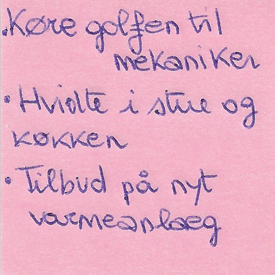 • Køre golfen til
mekaniker
• Hvidte i stue og
køkken
• Tilbud på nyt
varmeanlæg